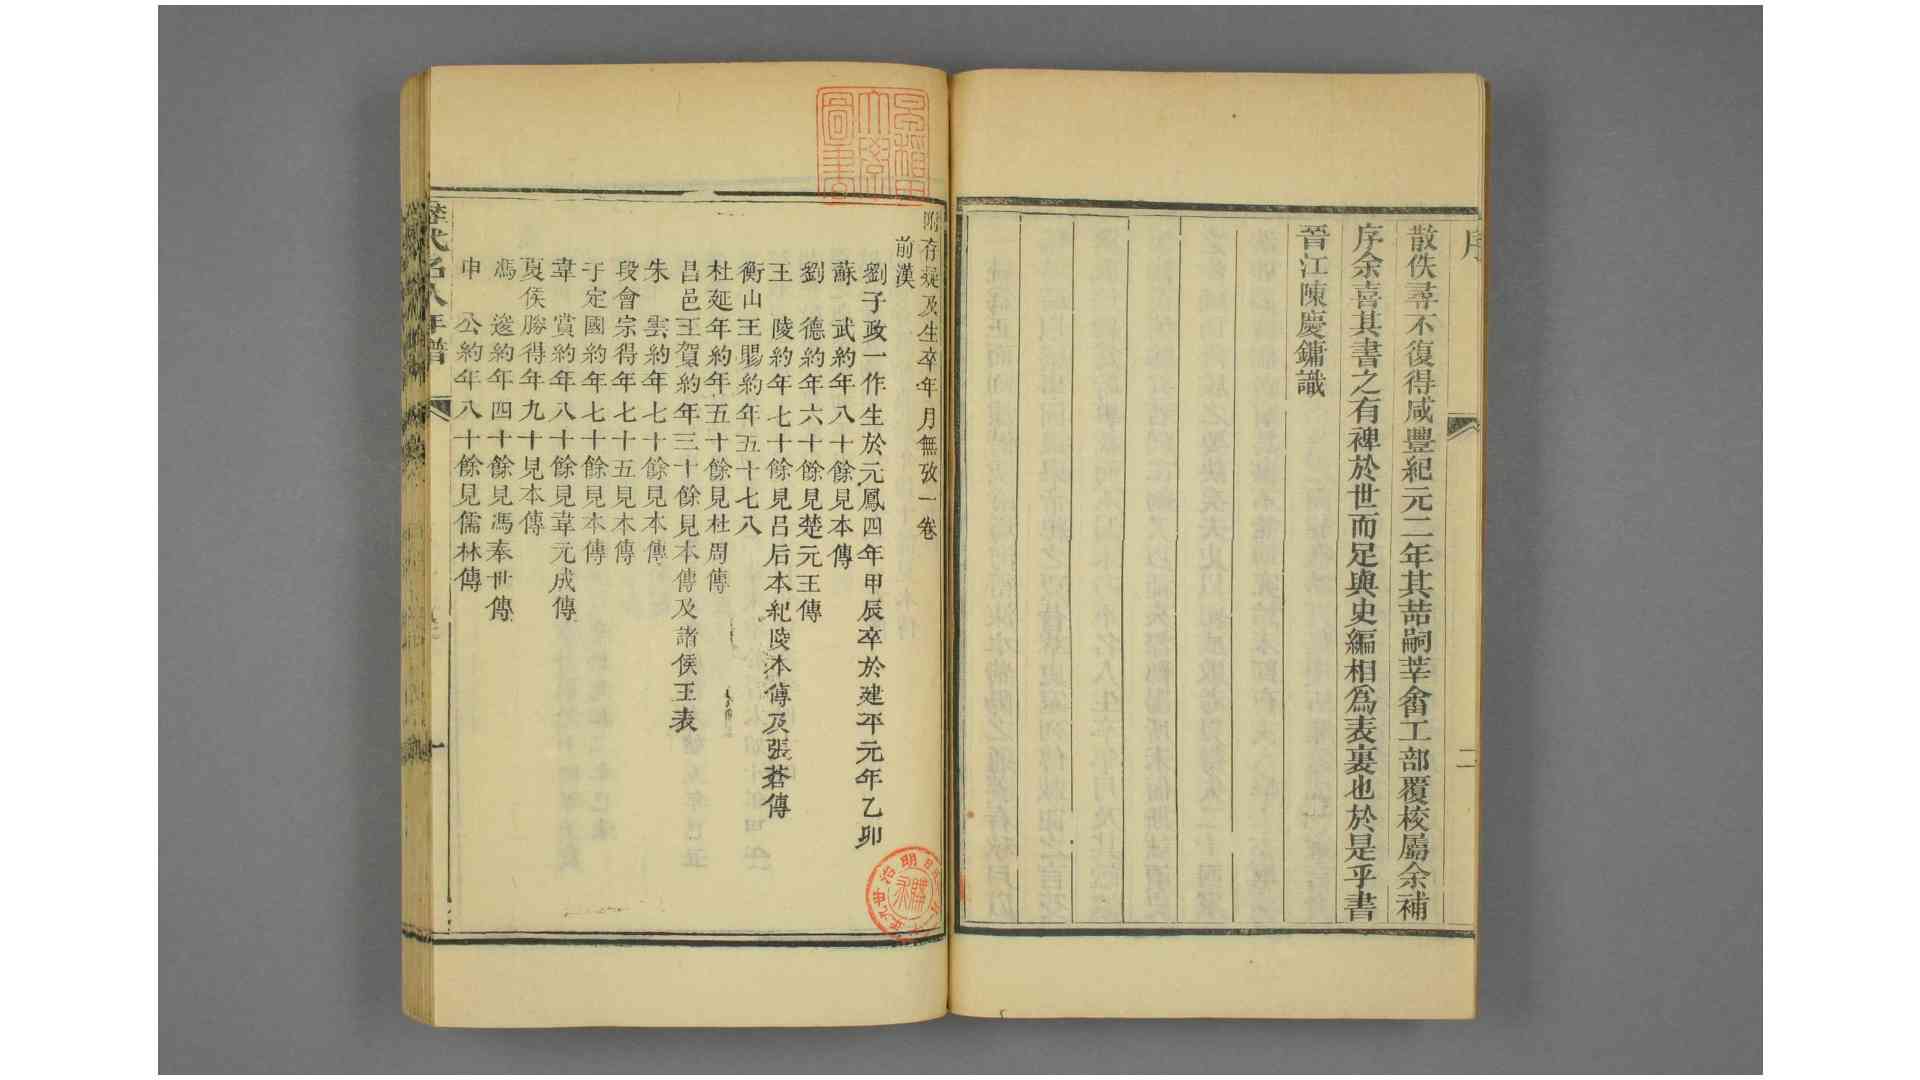 序
散佚尋不復得咸豐紀元二年其喆嗣莘畬工部覆校屬余補
序余喜其書之有裨於世而足與史編相爲表裏也於是乎書
晉江陳慶鏞識
二
附存疑及生卒年月無攷一卷
前漢
劉子政一作生於元鳳四年甲辰卒於建平元年乙卯
蘇　武約年八十餘見本傳
劉　德約年六十餘見楚元王傳
王　陵約年七十餘見呂后本紀陵本傳及張蒼傳
衡山王賜約年五十七八
杜延年約年五十餘見杜周傳
昌邑王賀約年三十餘見本傳及諸侯王表
朱　雲約年七十餘見本傳
段會宗得年七十五見本傳
于定國約年七十餘見本傳
韋　賞約年八十餘見韋元成傳
夏侯勝得年九十見本傳
馮　逡約年四十餘見馮奉世傳
申　公約年八十餘見儒林傳
歷代名人年譜
早稻田大學圖書
明治